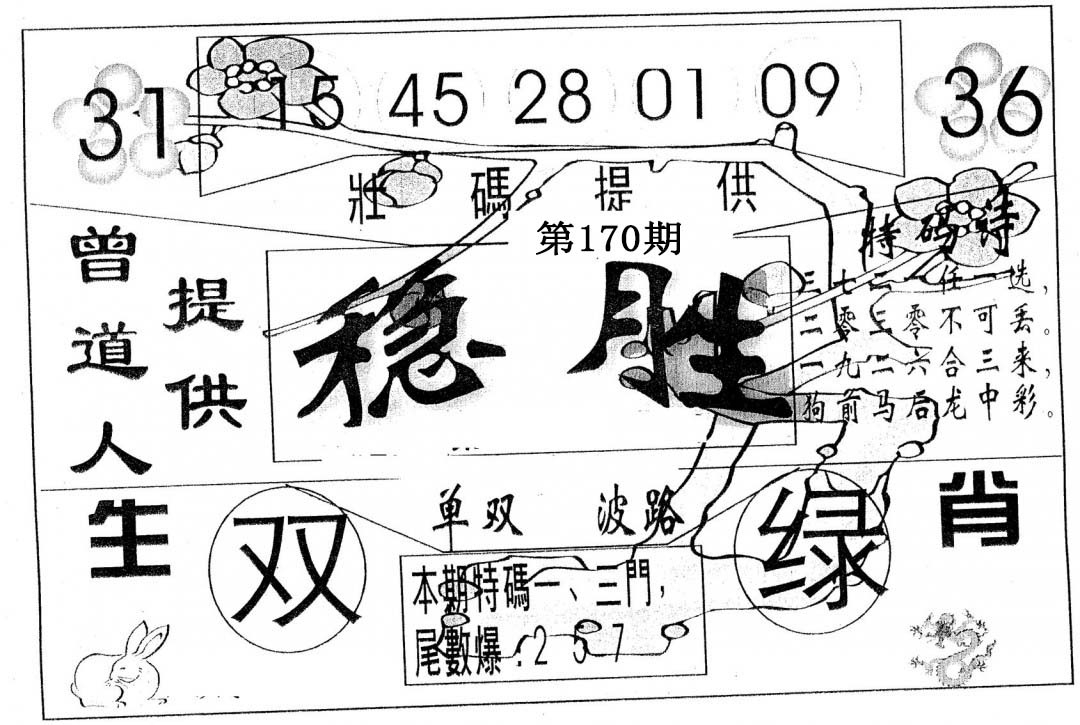 31 15 45 28 01 09 36
壯碼提供
第170期
特码诗
曾道人
提供
稳胜
三七二一任一选，
二零三零不可丢。
一九二六合三来，
狗前马后龙中彩。
单双 波路
生肖
双
绿
本期特碼一、三門，
尾數爆:2 5 7